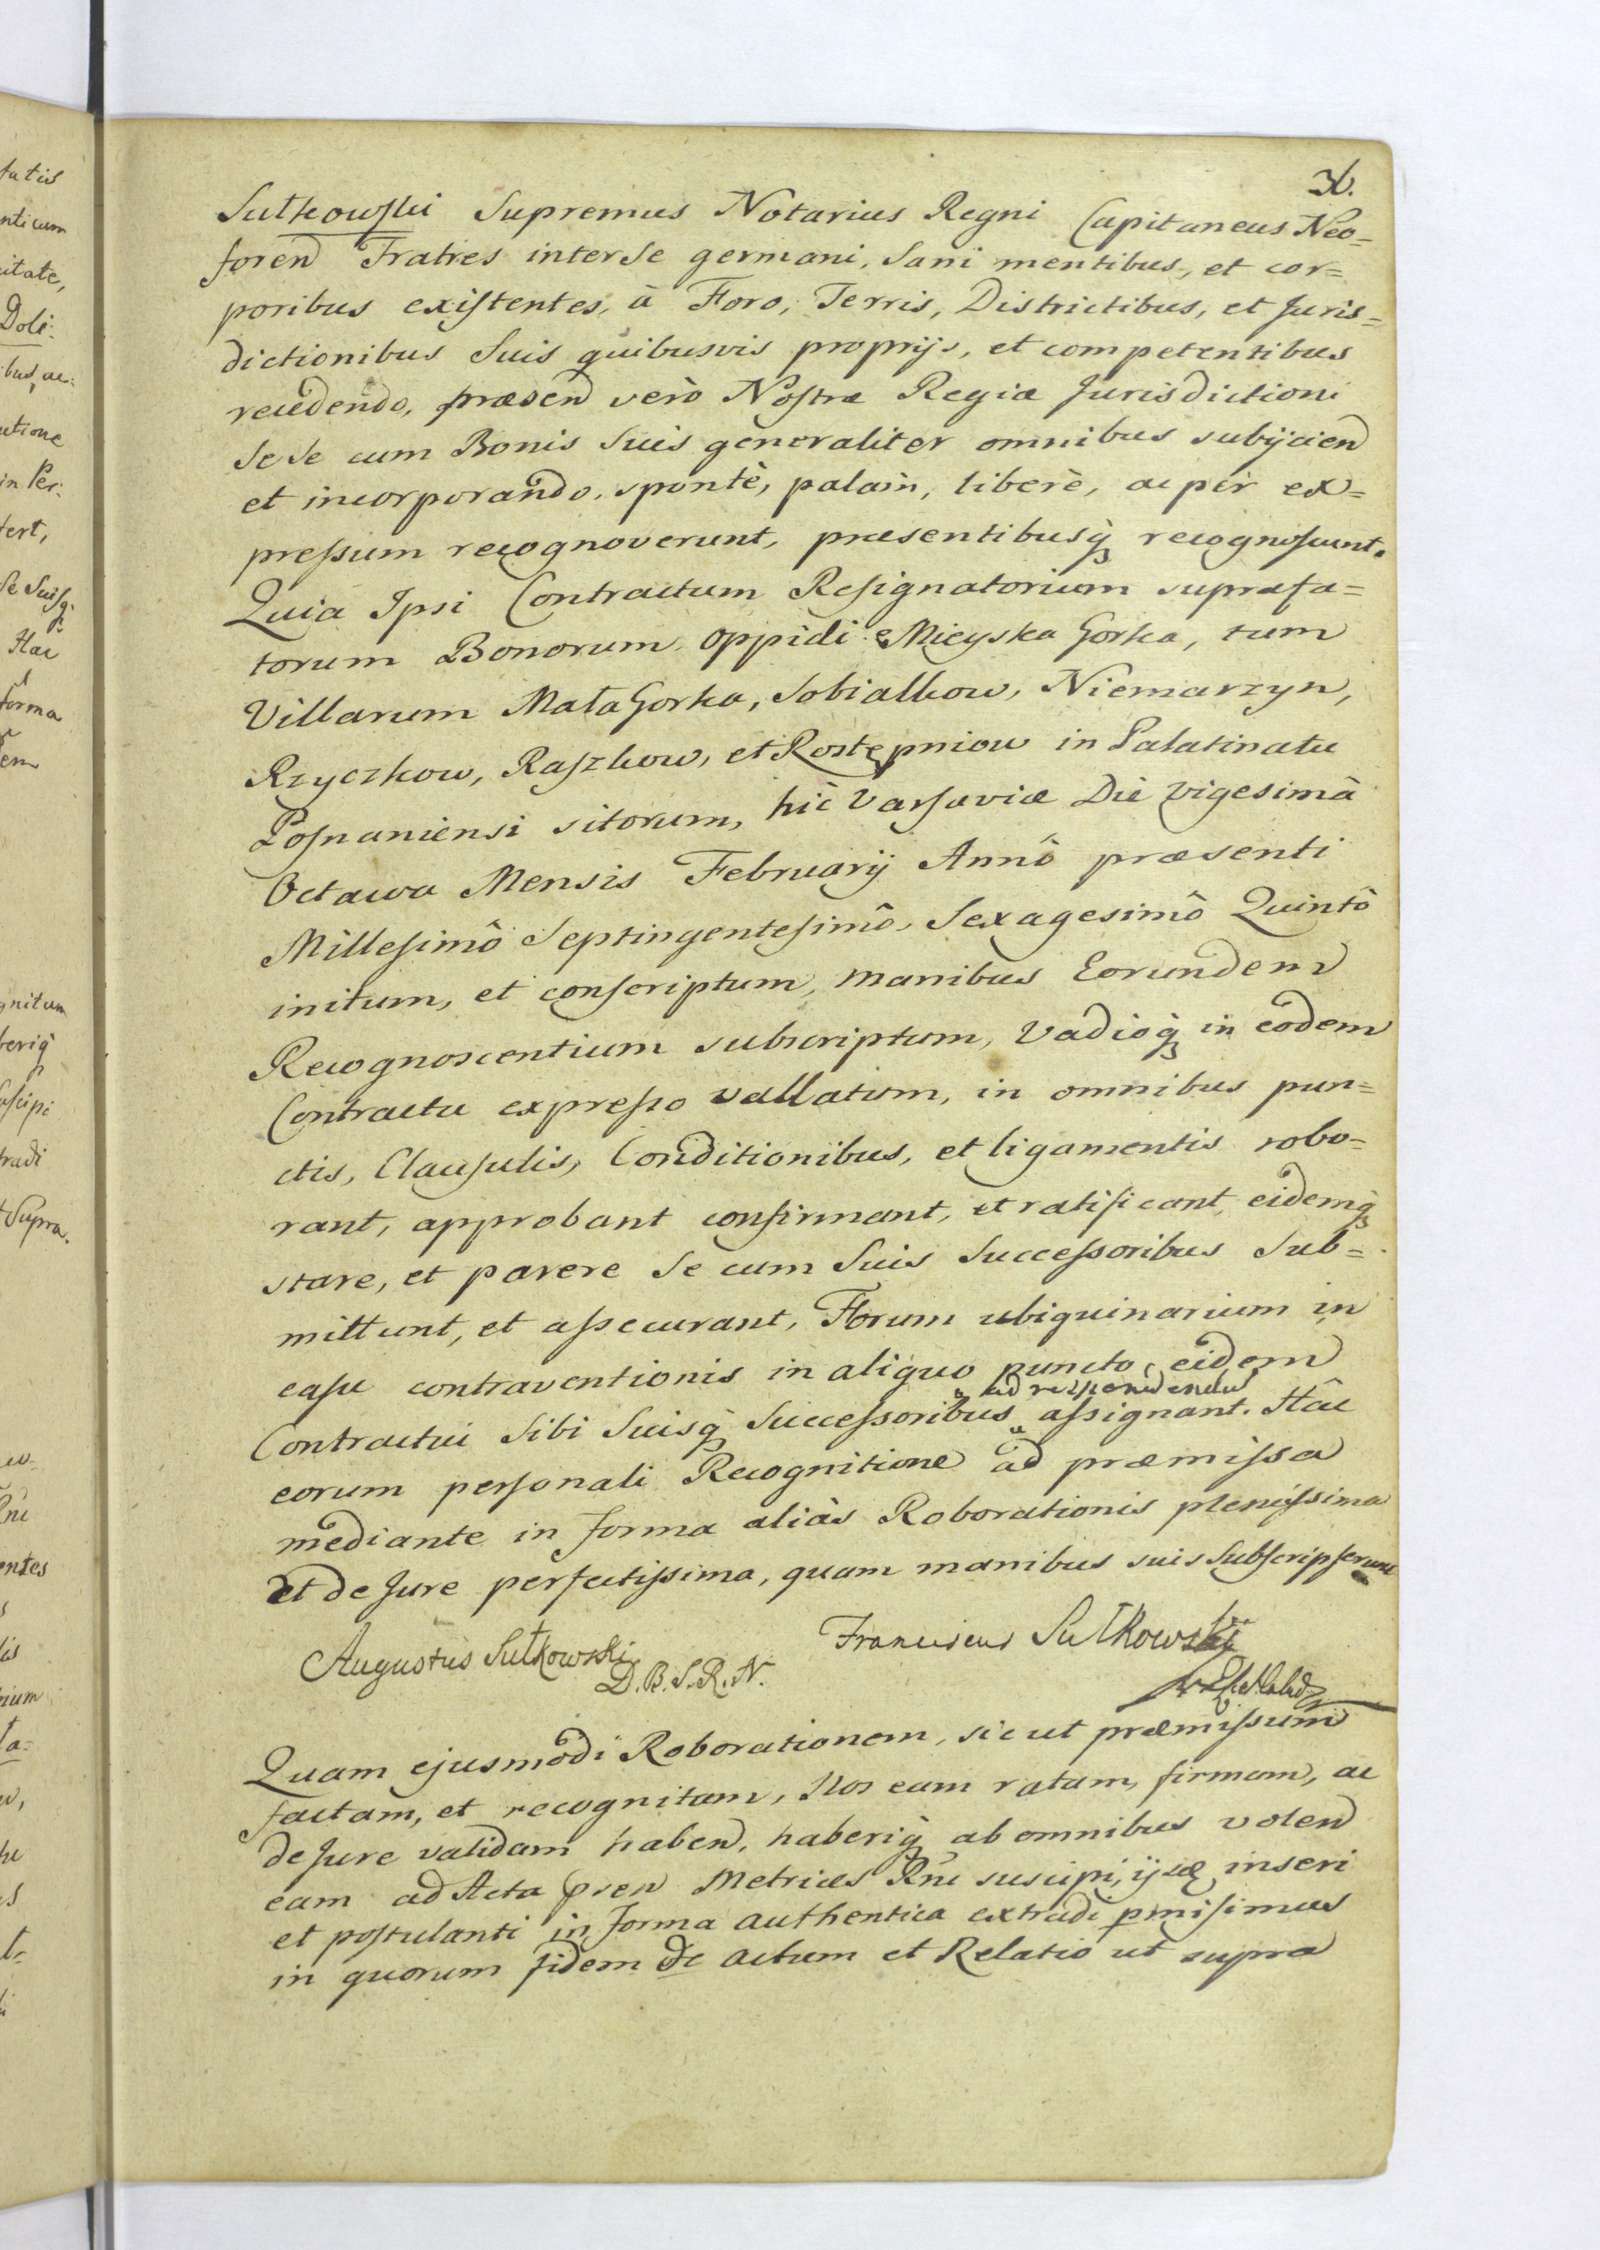 36.
Sułkowski Supremus Notarius Regni Capitaneus Neo=
foren Fratres inter Se germani, Sani mentibus, et cor=
poribus existentes, à Foro, Terris, Districtibus, et Juris=
dictionibus Suis quibusvis proprijs, et competentibus
recedendo, præsen verò Nostræ Regiæ Jurisdictioni
Se Se cum Bonis Suis generaliter omnibus subijcien
et incorporando, spontè, palàm, liberè, ac per ex=
pressum recognoverunt, præsentibusq̀ recognoscunt.
Quia Ipsi Contractum Resignatorium suprafa=
torum Bonorum oppidi Mieyska Gorka, tum
Villarum Mała Gorka, Sobialkow, Niemarzyn,
Rzyczkow, Raszkow, et Rostępniow in Palatinatu
Posnaniensi sitorum, hîc Varsaviæ Die vigesimâ
Octawa Mensis Februarij Annô præsenti
Millesimô Septingentesimô, Sexagesimô Quintô
initum, et conscriptum, manibus Eorundem
Recognoscentium subscriptum, Vadioq̀ in eodem
Contractu expresso vallatum, in omnibus pun=
ctis, Clausulis, Conditionibus, et ligamentis robo=
rant, approbant confirmant, et ratificant, eidemq̀
stare, et parere Se cum Suis Successoribus Sub=
mittunt, et assecurant, Forum ubiquinarium in
casu contraventionis in aliquo puncto eidem
ad respondendu
Contractui Sibi Suisq̀ Successoribus assignant. Hâc
eorum personali Recognitione ad præmissa
mediante in forma aliàs Roborationis plenissima
et de Jure perfectissima, quam manibus suis Subscripserunt
Augustus Sułkowski Franciscus Sułkowski
D.B.S.R.N.
Quam ejusmodi Roborationem, sicut præmissum
factam, et recognitam, Nos eam ratam, firmam, ac
de Jure validam haben, haberiq̀ ab omnibus volen
eam ad Acta pren Metrices Rni suscipi, ijsq̀ inseri
et postulanti in Forma authentica extradi pmisimus
in quorum fidem &c actum et Relatio ut supra